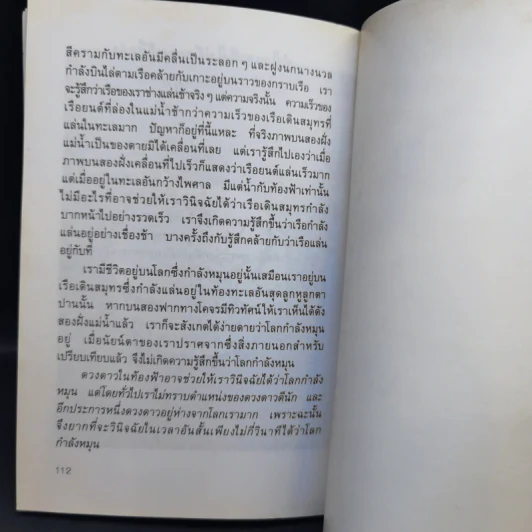 สีครามกับทะเลอันมีคลื่นเป็นระลอก ๆ และฝูงนกนางนวล
กำลังบินไล่ตามเรือคล้ายกับเกาะอยู่บนราวของกราบเรือ เรา
จะรู้สึกว่าเรือของเราช่างแล่นช้าจริง ๆ แต่ความจริงนั้น ความเร็วของ
เรือยนต์ที่ล่องในแม่น้ำช้ากว่าความเร็วของเรือเดินสมุทรที่
แล่นในทะเลมาก ปัญหาก็อยู่ที่นี่แหละ ที่จริงภาพบนสองฝั่ง
แม่น้ำเป็นของตายมิได้เคลื่อนที่เลย แต่เรารู้สึกไปเองว่าเมื่อ
ภาพบนสองฝั่งเคลื่อนที่ไปเร็วก็แสดงว่าเรือยนต์แล่นเร็วมาก
แต่เมื่ออยู่ในทะเลอันกว้างไพศาล มีแต่น้ำกับท้องฟ้าเท่านั้น
ไม่มีอะไรที่อาจช่วยให้เราวินิจฉัยได้ว่าเรือเดินสมุทรกำลัง
บากหน้าไปอย่างรวดเร็ว เราจึงเกิดความรู้สึกขึ้นว่าเรือกำลัง
แล่นอยู่อย่างเชื่องช้า บางครั้งถึงกับรู้สึกคล้ายกับว่าเรือแล่น
อยู่กับที่
เรามีชีวิตอยู่บนโลกซึ่งกำลังหมุนอยู่นั้นเสมือนเราอยู่บน
เรือเดินสมุทรซึ่งกำลังแล่นอยู่ในท้องทะเลอันสุดลูกหูลูกตา
ปานนั้น หากบนสองฟากทางโคจรมีทิวทัศน์ให้เราเห็นได้ดัง
สองฝั่งแม่น้ำแล้ว เราก็จะสังเกตได้ง่ายดายว่าโลกกำลังหมุน
อยู่ เมื่อนัยน์ตาของเราปราศจากซึ่งสิ่งภายนอกสำหรับ
เปรียบเทียบแล้ว จึงไม่เกิดความรู้สึกขึ้นว่าโลกกำลังหมุน
ดวงดาวในท้องฟ้าอาจช่วยให้เราวินิจฉัยได้ว่าโลกกำลัง
หมุน แต่โดยทั่วไปเราไม่ทราบตำแหน่งของดวงดาวดีนัก และ
อีกประการหนึ่งดวงดาวอยู่ห่างจากโลกเรามาก เพราะฉะนั้น
จึงยากที่จะวินิจฉัยในเวลาอันสั้นเพียงไม่กี่วินาทีได้ว่าโลก
กำลังหมุน
112